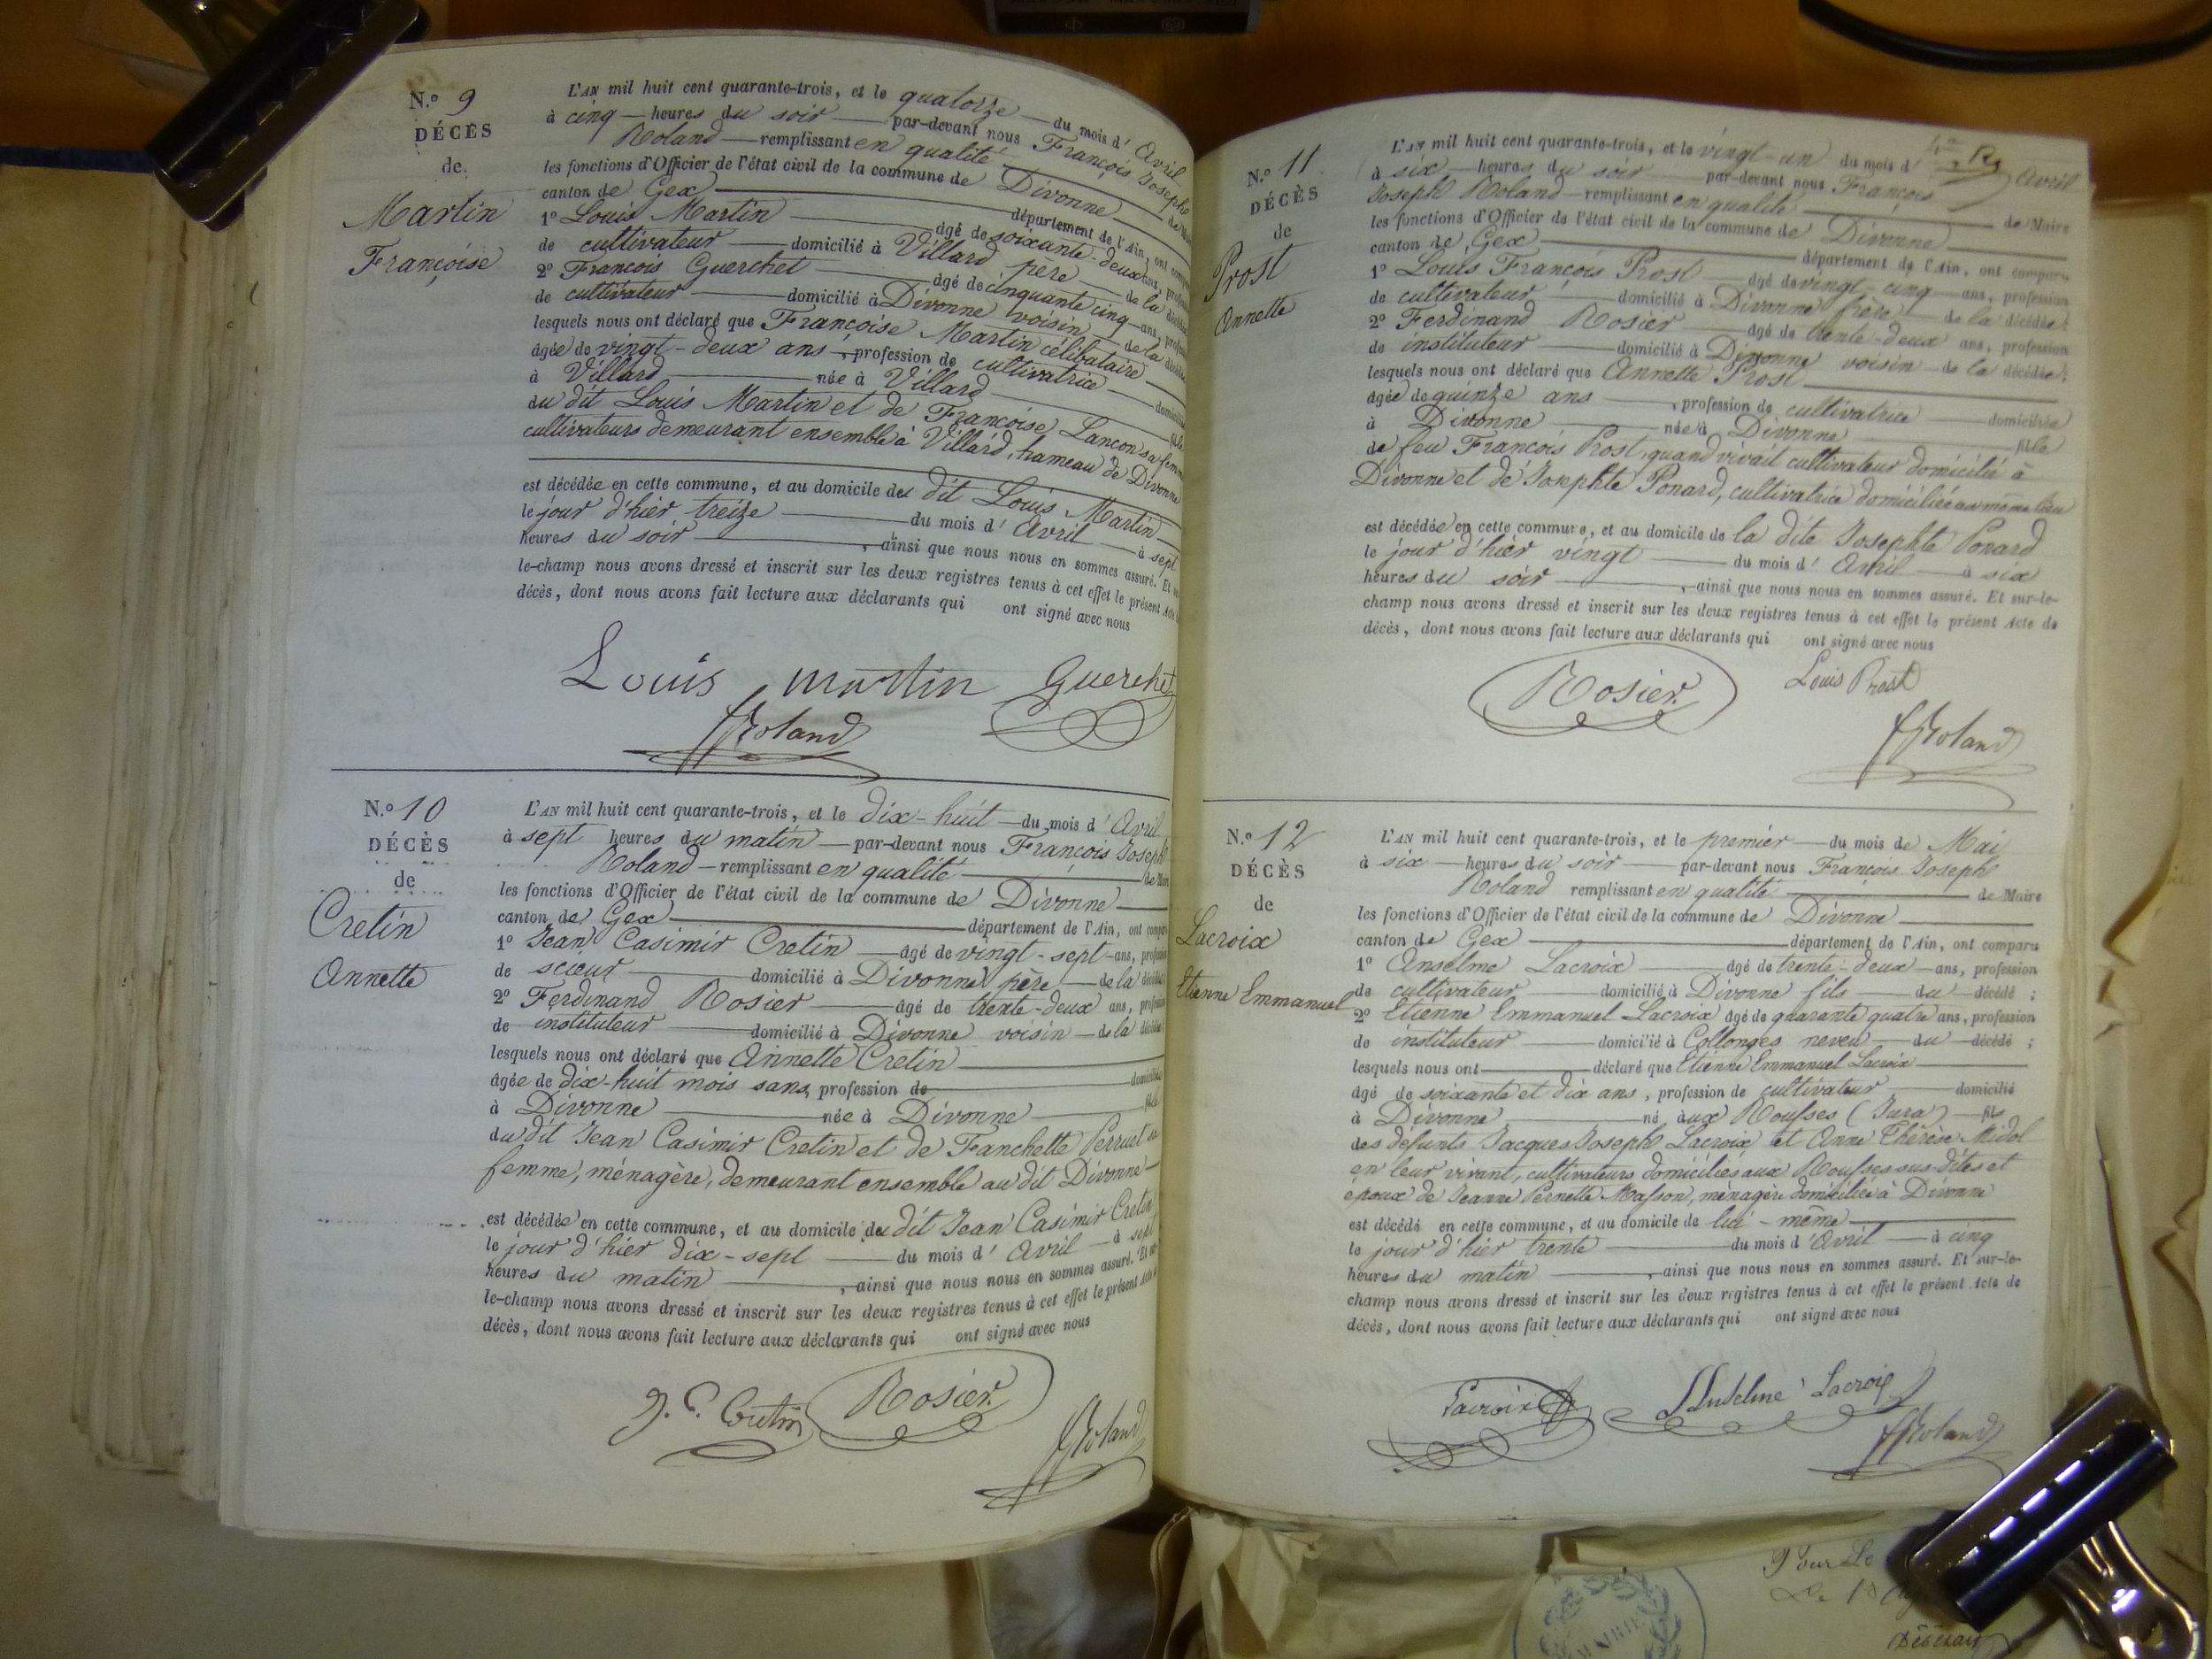 N.º 9
DÉCÈS
de
Martin
Françoise
L'AN mil huit cent quarante-trois, et le quatorze du mois d'Avril
à cinq heures du soir par-devant nous François Joseph
Roland remplissant en qualité de Maire
les fonctions d'Officier de l'état civil de la commune de Divonne
canton de Gex département de l'Ain, ont comparu
1º Louis Martin âgé de soixante-deux ans, profession
de cultivateur domicilié à Villard père de la décédée
2º François Guerchet âgé de cinquante cinq ans, profession
de cultivateur domicilié à Divonne voisin de la décédée
lesquels nous ont déclaré que Françoise Martin célibataire
âgée de vingt-deux ans, profession de cultivatrice domiciliée
à Villard née à Villard fille
du dit Louis Martin et de Françoise Lancon sa femme
cultivateurs demeurant ensemble à Villard, hameau de Divonne
est décédée en cette commune, et au domicile du dit Louis Martin
le jour d'hier treize du mois d'Avril à sept
heures du soir, ainsi que nous nous en sommes assuré. Et sur
le-champ nous avons dressé et inscrit sur les deux registres tenus à cet effet le présent Acte de
décès, dont nous avons fait lecture aux déclarants qui ont signé avec nous
Louis martin Guerchet
Roland
N.º 10
DÉCÈS
de
Cretin
Annette
L'AN mil huit cent quarante-trois, et le dix-huit du mois d'Avril
à sept heures du matin par-devant nous François Joseph
Roland remplissant en qualité de Maire
les fonctions d'Officier de l'état civil de la commune de Divonne
canton de Gex département de l'Ain, ont comparu
1º Jean Casimir Cretin âgé de vingt-sept ans, profession
de scieur domicilié à Divonne père de la décédée
2º Ferdinand Rosier âgé de trente-deux ans, profession
de instituteur domicilié à Divonne voisin de la décédée
lesquels nous ont déclaré que Annette Cretin
âgée de dix-huit mois sans, profession de domiciliée
à Divonne née à Divonne fille
du dit Jean Casimir Cretin et de Fanchette Perruet sa
femme, ménagère, demeurant ensemble au dit Divonne
est décédée en cette commune, et au domicile du dit Jean Casimir Cretin
le jour d'hier dix-sept du mois d'Avril à sept
heures du matin, ainsi que nous nous en sommes assuré. Et sur
le-champ nous avons dressé et inscrit sur les deux registres tenus à cet effet le présent Acte de
décès, dont nous avons fait lecture aux déclarants qui ont signé avec nous
J. C. Cretin Rosier.
Roland
N.º 11
DÉCÈS
de
Prost
Annette
L'AN mil huit cent quarante-trois, et le vingt-un du mois d'Avril
à six heures du soir par-devant nous François
Joseph Roland remplissant en qualité de Maire
les fonctions d'Officier de l'état civil de la commune de Divonne
canton de Gex département de l'Ain, ont comparu
1º Louis François Prost âgé de vingt-cinq ans, profession
de cultivateur domicilié à Divonne frère de la décédée;
2º Ferdinand Rosier âgé de trente-deux ans, profession
de instituteur domicilié à Divonne voisin de la décédée;
lesquels nous ont déclaré que Annette Prost
âgée de quinze ans, profession de cultivatrice domiciliée
à Divonne née à Divonne fille
de feu François Prost, quand vivait cultivateur domicilié à
Divonne et de Josephte Ponard, cultivatrice domiciliée au même lieu
est décédée en cette commune, et au domicile de la dite Josephte Ponard
le jour d'hier vingt du mois d'Avril à six
heures du soir, ainsi que nous nous en sommes assuré. Et sur-le-
champ nous avons dressé et inscrit sur les deux registres tenus à cet effet le présent Acte de
décès, dont nous avons fait lecture aux déclarants qui ont signé avec nous
Rosier. Louis Prost
Roland
N.º 12
DÉCÈS
de
Lacroix
Etienne Emmanuel
L'AN mil huit cent quarante-trois, et le premier du mois de Mai
à six heures du soir par-devant nous François Joseph
Roland remplissant en qualité de Maire
les fonctions d'Officier de l'état civil de la commune de Divonne
canton de Gex département de l'Ain, ont comparu
1º Anselme Lacroix âgé de trente-deux ans, profession
de cultivateur domicilié à Divonne fils du décédé;
2º Etienne Emmanuel Lacroix âgé de quarante quatre ans, profession
de instituteur domicilié à Collonges neveu du décédé;
lesquels nous ont déclaré que Etienne Emmanuel Lacroix
âgé de soixante et dix ans, profession de cultivateur domicilié
à Divonne né aux Rousses (Jura) fils
des défunts Jacques Joseph Lacroix et Anne Thérèse Midol
en leur vivant, cultivateurs domiciliés aux Rousses sus-dites et
époux de Jeanne Pernette Masson, ménagère domiciliée à Divonne
est décédé en cette commune, et au domicile de lui-même
le jour d'hier trente du mois d'Avril à cinq
heures du matin, ainsi que nous nous en sommes assuré. Et sur-le-
champ nous avons dressé et inscrit sur les deux registres tenus à cet effet le présent Acte de
décès, dont nous avons fait lecture aux déclarants qui ont signé avec nous
Lacroix Anselme Lacroix
Roland
Pour Le